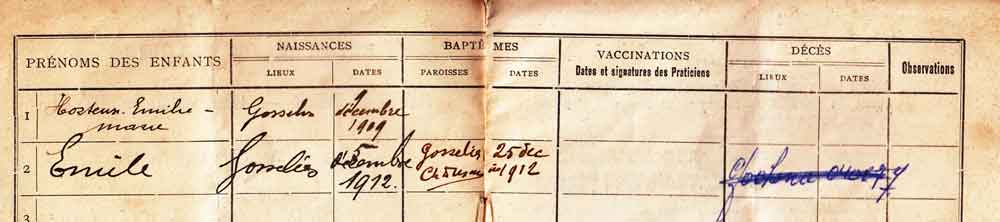 PRÉNOMS DES ENFANTS NAISSANCES BAPTÊMES VACCINATIONS DÉCÈS Observations
LIEUX DATES PAROISSES DATES Dates et signatures des Praticiens LIEUX DATES
1 Emilie - Gosselies décembre
marie 1909
2 Emile Gosselies 5 décembre Gosselies 25 dec
1912. 1912
3